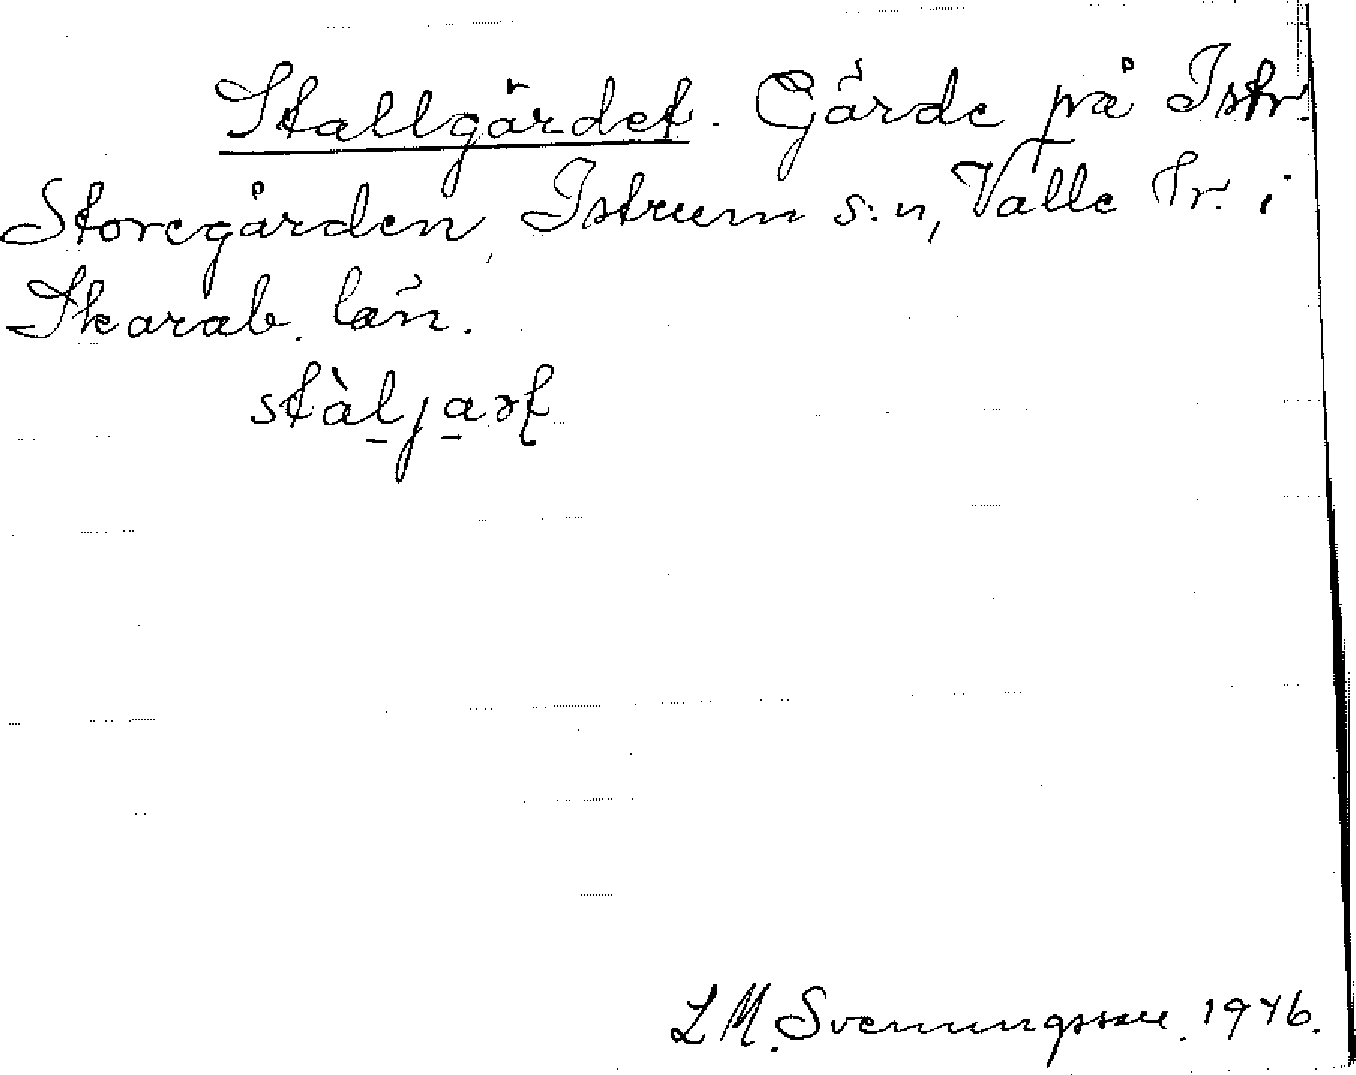 Stallgärdet. Gärde på Istr.
Storegården, Istrum s:n, Valle Hr. i
Skarab. län.
L M. Svenungsson. 1946.